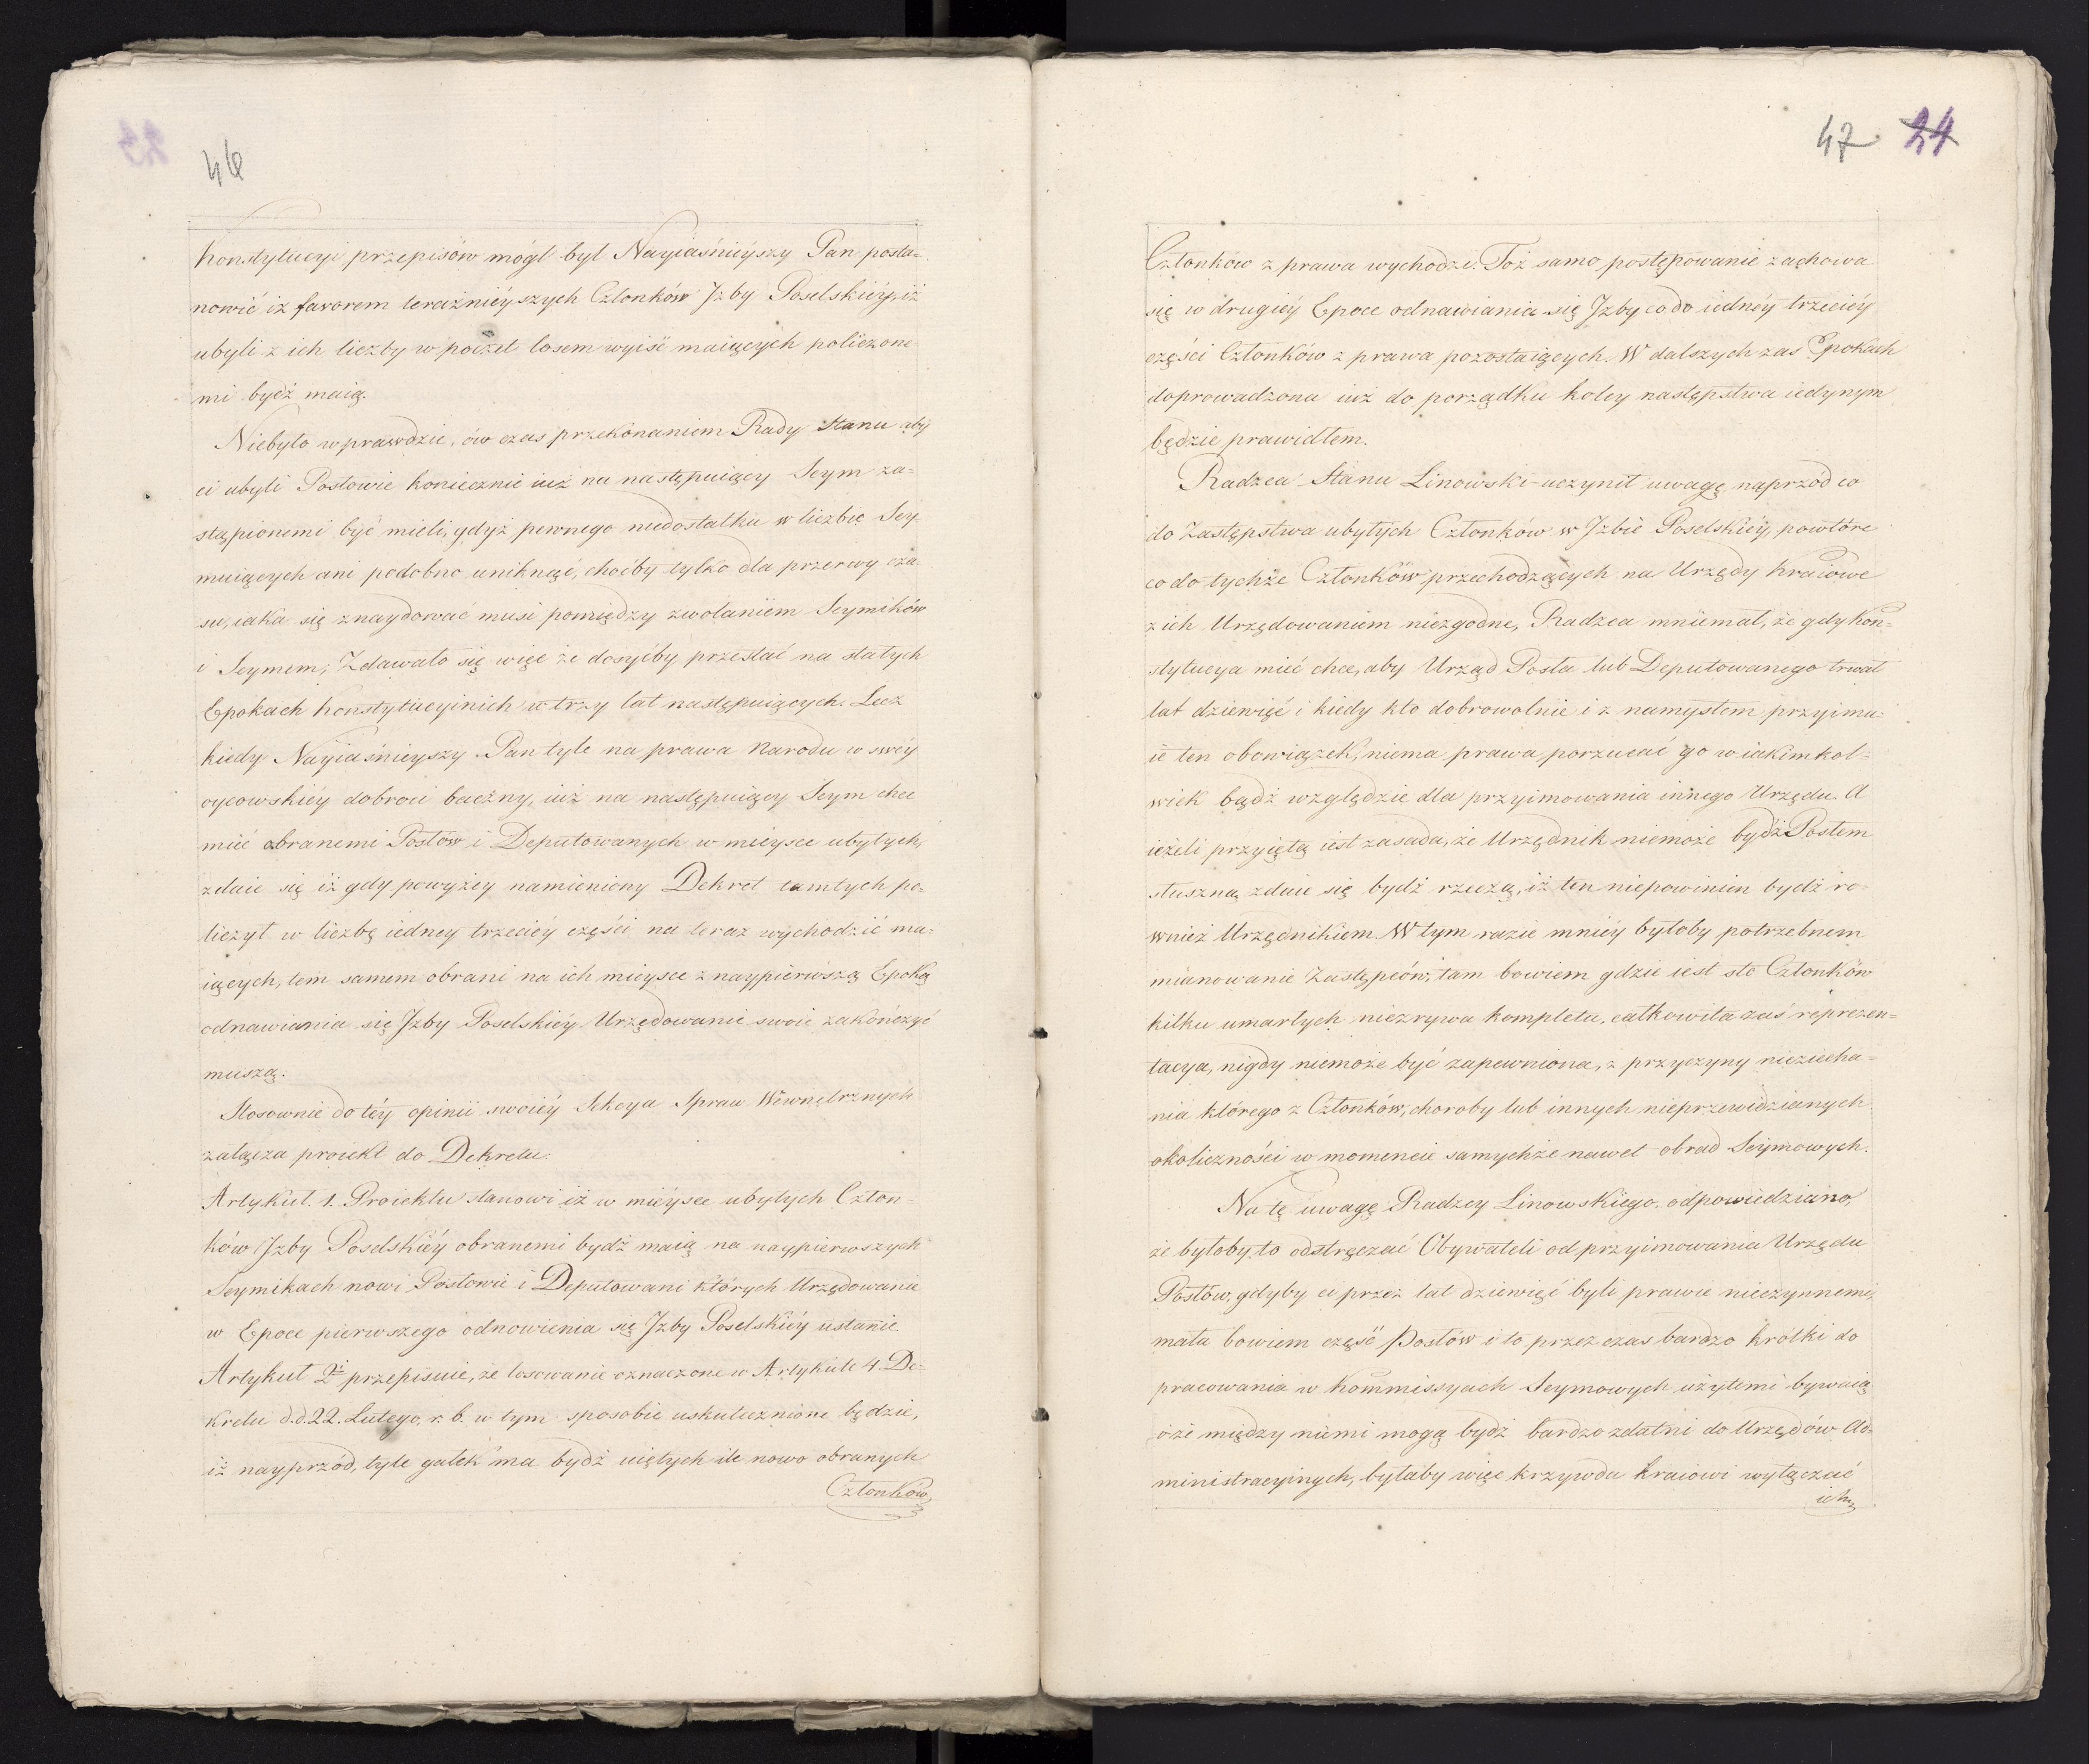 46
konstytucyi przepisów mógł był Nayiaśnieyszy Pan posta=
nowić iż faworem teraźnieyszych Członków Jzby Poselskiéy, iż
ubyli z ich liczby w poczet losem wyiść maiących policzone
mi bydź maią.
Niebyło wprawdzie, ów czas przekonaniem Rady Stanu aby
ci ubyli Posłowie koniecznie iuż na następuiący Seym za=
stąpionemi być mieli, gdyż pewnego niedostatku w liczbie Sey=
muiących ani podobno uniknąć, choćby tylko dla przerwy cza
su, iaka się znaydować musi pomiędzy zwołaniem Seymików
i Seymem; Zdawało się więc że dosyćby przestać na stałych
Epokach Konstytucyinich w trzy lat następuiących. Lecz
kiedy Nayiaśnieyszy Pan tyle na prawa Narodu w swéy
oycowskiéy dobroci baczny, iuż na następuiący Seym chce
mieć obranemi Posłów i Deputowanych w mieysce ubyłych,
zdaie się iż gdy powyżey namieniony Dekret tamtych po=
liczył w liczbę iedney trzeciéy części na teraz wychodzić ma=
iących, tem samem obrani na ich mieysce z naypierwszą Epoką
odnawiania się Jzby Poselskiéy Urzędowanie swoie zakończyć
muszą.
Stosownie do téy opinii swoiéy Sekcya Spraw Wewnętrznych
załącza proiekt do Dekretu.
Artykuł. 1. Proiektu stanowi iż w mieysce ubyłych Człon=
ków Jzby Poselskiéy obranemi bydź maią na naypierwszych
Seymikach nowi Posłowie i Deputowani których Urzędowanie
w Epoce pierwszego odnowienia się Jzby Poselskiéy ustanie.
Artykuł 2i przepisuie, że losowanie oznaczone w Artykule 4. De=
kretu d.d. 22. Lutego r. b. w tym sposobie uskutecznione będzie,
iż nayprzód, tyle gałek ma bydź uiętych ile nowo obranych
Członków,
47 24
Członków z prawa wychodzi. Toż samo postępowanie zachowa
się w drugiéy Epoce odnawiania się Jzby co do iednéy trzeciéy
części Członków z prawa pozostaiących. W dalszych zas Epokach
doprowadzona iuż do porządku koley następstwa iedynym
będzie prawidłem.
Radzca Stanu Linowski uczynił uwagę naprzód co
do Zastępstwa ubyłych Członków w Jzbie Poselskiéy, powtóre
co do tychże Członków przechodzących na Urzędy Kraiowe
z ich Urzędowaniem niezgodne, Radzca mniemał, że gdy Kon=
stytucya mieć chce, aby Urząd Posła lub Deputowanego trwał
lat dziewięć i kiedy kto dobrowolnie i z namysłem przyimu=
ie ten obowiązek, niema prawa porzucać go w iakimkol=
wiek bądź względzie dla przyimowania innego Urzędu. A
ieżeli przyiętą iest zasada, że Urzędnik niemoże bydź Posłem
słuszną zdaie się bydź rzeczą, iż ten niepowinien bydź ró=
wnież Urzędnikiem. W tym razie mniéy byłoby potrzebnem
mianowanie Zastępców; tam bowiem gdzie iest sto Członków
kilku umarłych niezrywa kompletu, całkowita zaś reprezen=
tacya, nigdy niemoże być zapewniona, z przyczyny niezjecha=
nia którego z Członków, choroby lub innych nieprzewidzianych
okoliczności w momencie samychże nawet obrad Seymowych.
Na tę uwagę Radzcy Linowskiego, odpowiedziano,
że byłoby to odstręczać Obywateli od przyimowania Urzędu
Posłów, gdyby ci przez lat dziewięć byli prawie nieczynnemi,
mała bowiem część Posłów i to przez czas bardzo krótki do
pracowania w Kommissyach Seymowych użytemi bywaią
a że między niemi mogą bydź bardzo zdatni do Urzędów Ad=
ministracyinych, byłaby więc krzywda kraiowi wyłączać
ich